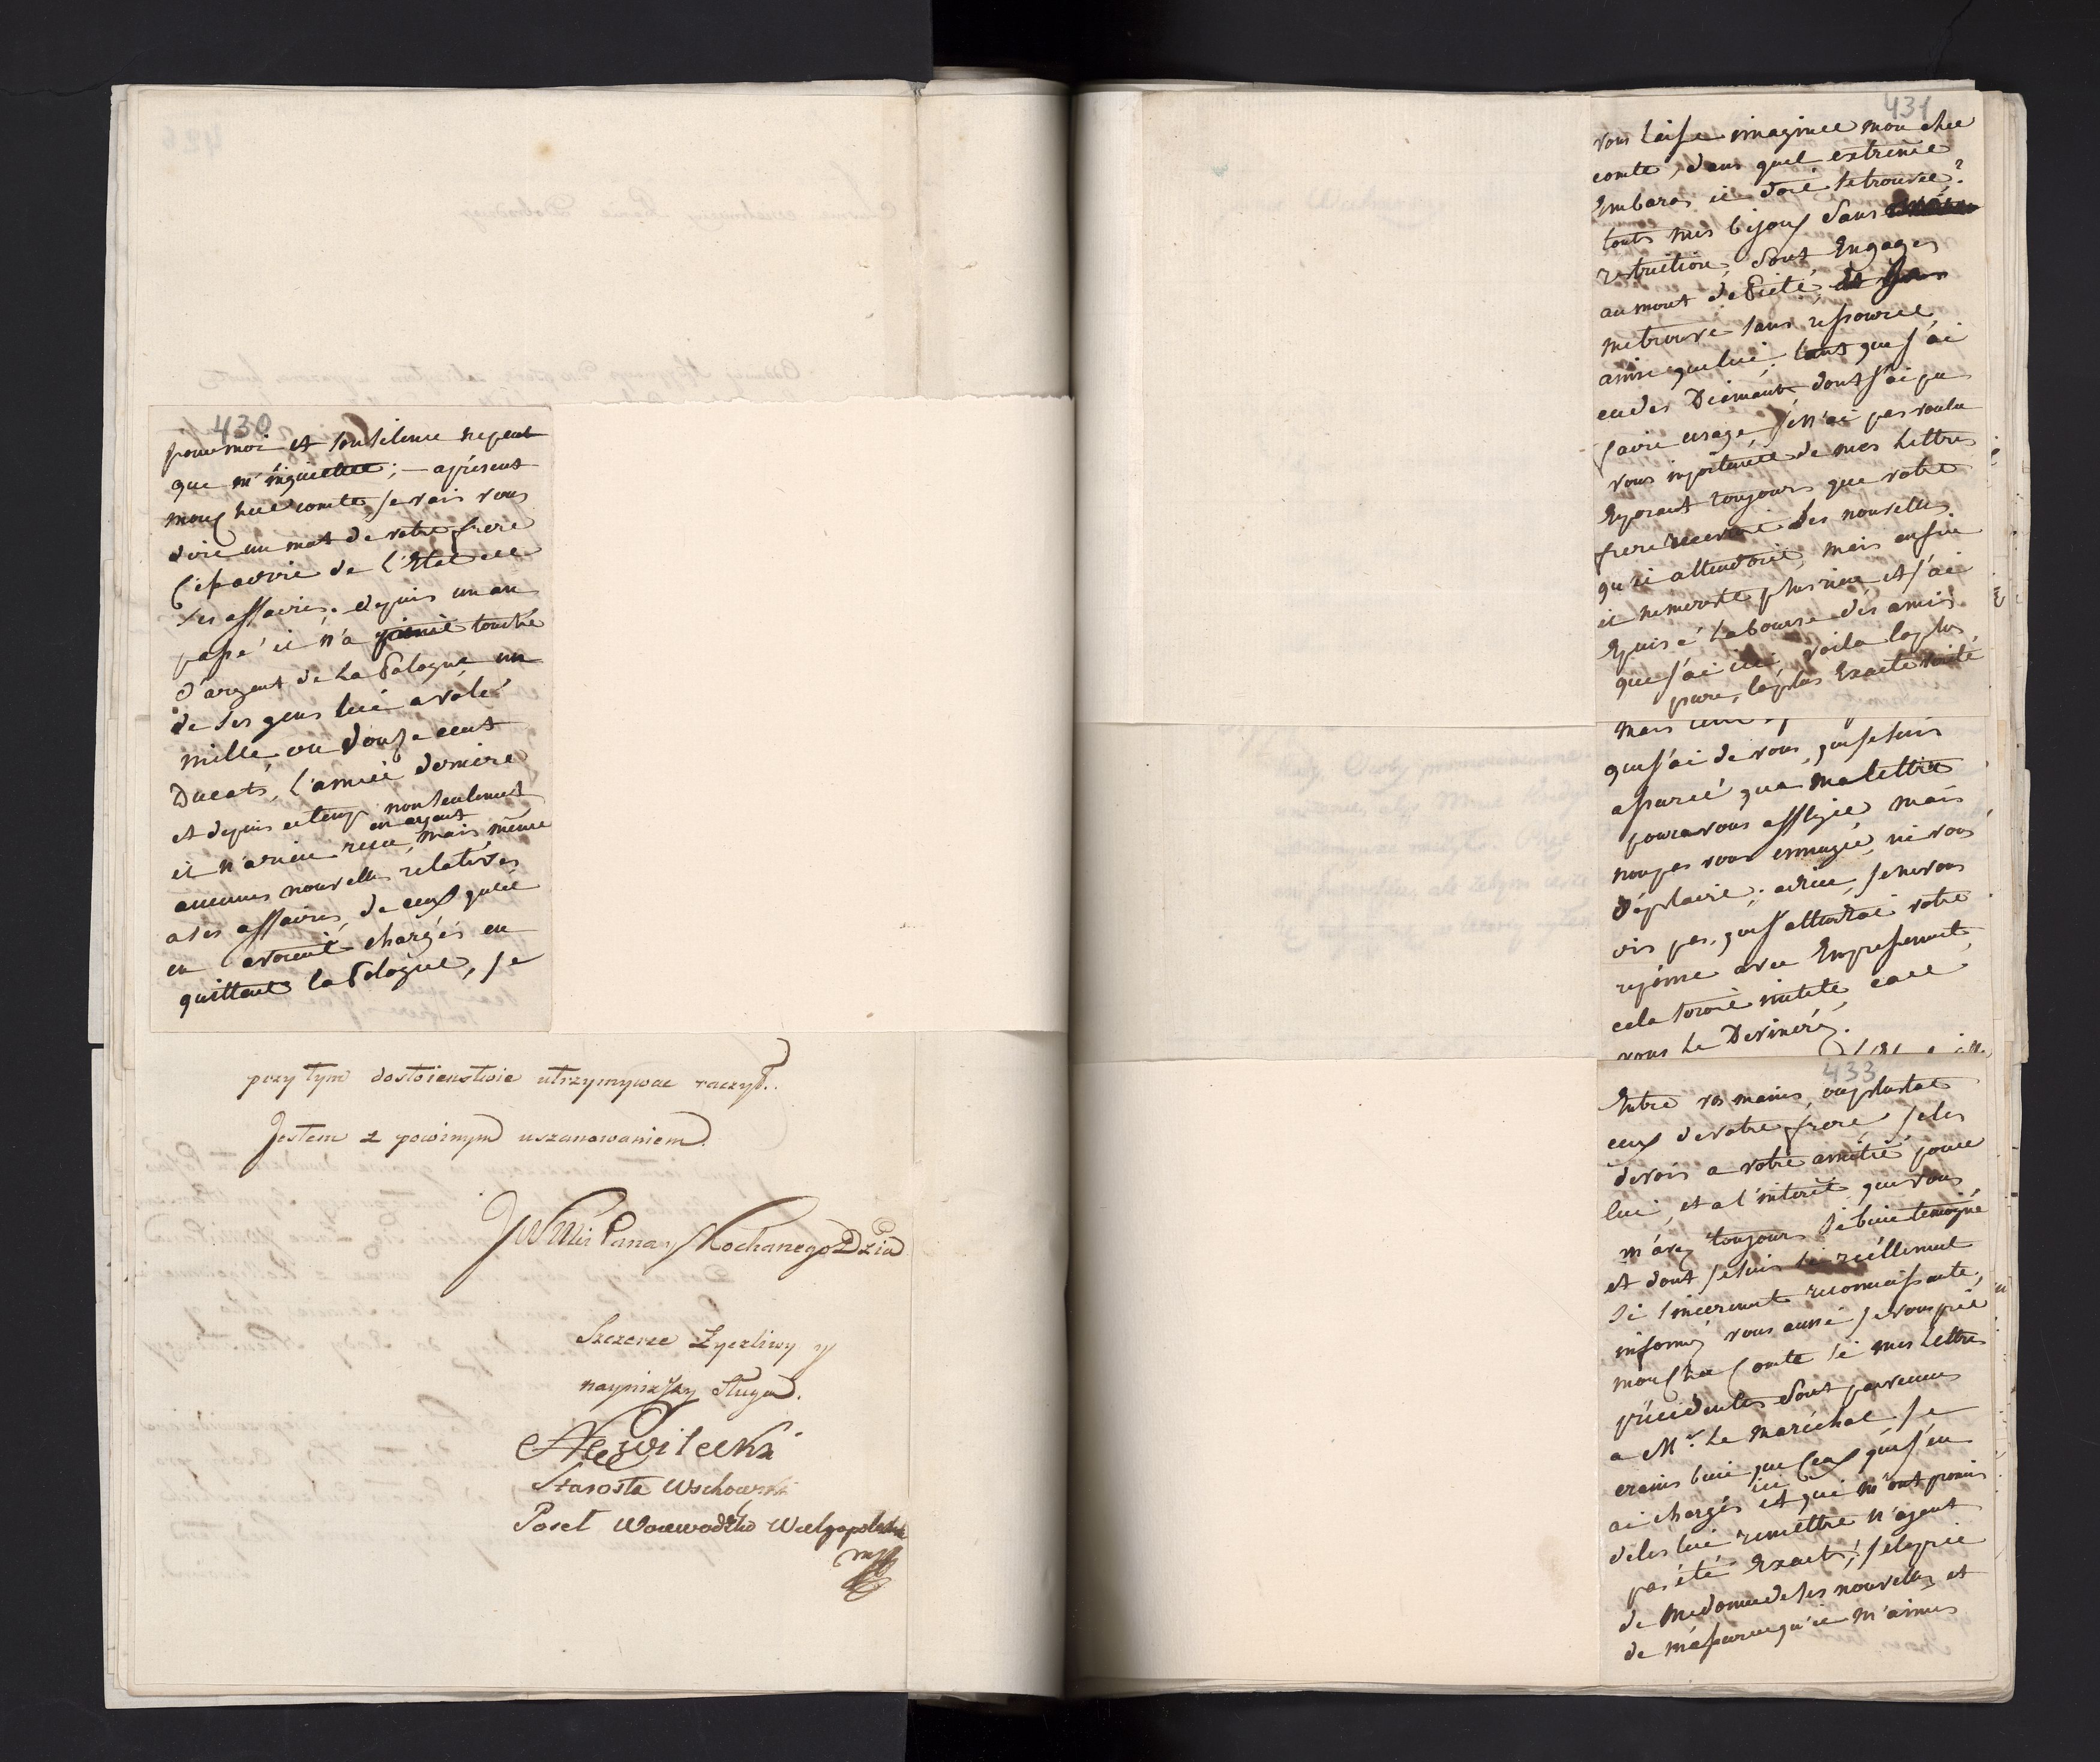 430
pour moi et son silence ne peut
que m'inquieter; – apresent
mon cher comte, je vais vous
dire un mot de votre frere
c'est adire de l'Etat de
ses affaires. depuis un an
passé il n'a touché
d'argent de la Pologne, un
de ses gens lui a volé
mille, ou douze cent
Ducats, l'année derniere
et depuis ce temp non seulement
il n'a rien recu, mais même
en ayant
aucunes nouvelles relatives
a ses affaires, de ceux qu'il
en avoient chargés en
quittant la Pologne, je
przy tym dostoienstwie utrzymywac raczył.
Jestem z powinnym uszanowaniem
JWWMći Pana y Kochanego Dzia
Szczerze Zyczliwy y
nayniższy Sługa.
Kęszycki
Starosta Wschowski
Poseł Woiewodztw Wielgopolskich
mp
431
vous laisse imaginer mon cher
comte, dans quel extreme
Embaras il doit se trouver?
touts mes bijoux sans
restriction, sont Engages
au mont de Pieté,
me trouve sans ressource,
ainsi que lui; tant que j'ai
eu des Diamants, dont j'ai pu
faire usage, je n'ai pas voulu
vous importuner de mes Lettres
Esperant toujours que votre
frere recevroit des nouvelles
qu'il attendoit, mais enfin
il ne me reste plus rien et j'ai
Epuisé la bourse des amis
que j'ai ici, voila la plus
pure, la plus Exacte verité
que j'ai de vous, que je suis
assurée que ma lettre
pourra vous affliger mais
non pas vous ennuyer, ni vous
déplaire; adieu, je ne vous
dis pas, que j'attendrai votre
reponse avec Empressement,
cela seroit inutile, car
vous le Devinéz.
433
Entre vos mains, ou plustot
ceux de votre frere, je les
devois a votre amitié pour
lui, et a l'interêt que vous
m'avez toujours si bien temoigné
et dont je suis si réellement
si sincerement reconnoissante,
informez vous aussi je vous prie
mon cher Comte si mes Lettres
précédentes sont parvenues
a Mr. Le Maréchal je
crains bien que ceux que j'en
ai chargés ici et qui m'ont promis
de les lui remettre n'ayent
pas été Exacts; je le prie
de me donner de ses nouvelles et
de m'assurer qu'il m'aime